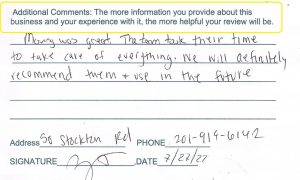 Additional Comments: The more information you provide about this
business and your experience with it, the more helpful your review will be.
Moving was great. The team took their time
to take care of everything. We will definitely
recommend them + use in the future
Address 50 Stockton Rd PHONE 201-919-6142
SIGNATURE DATE 7/22/22